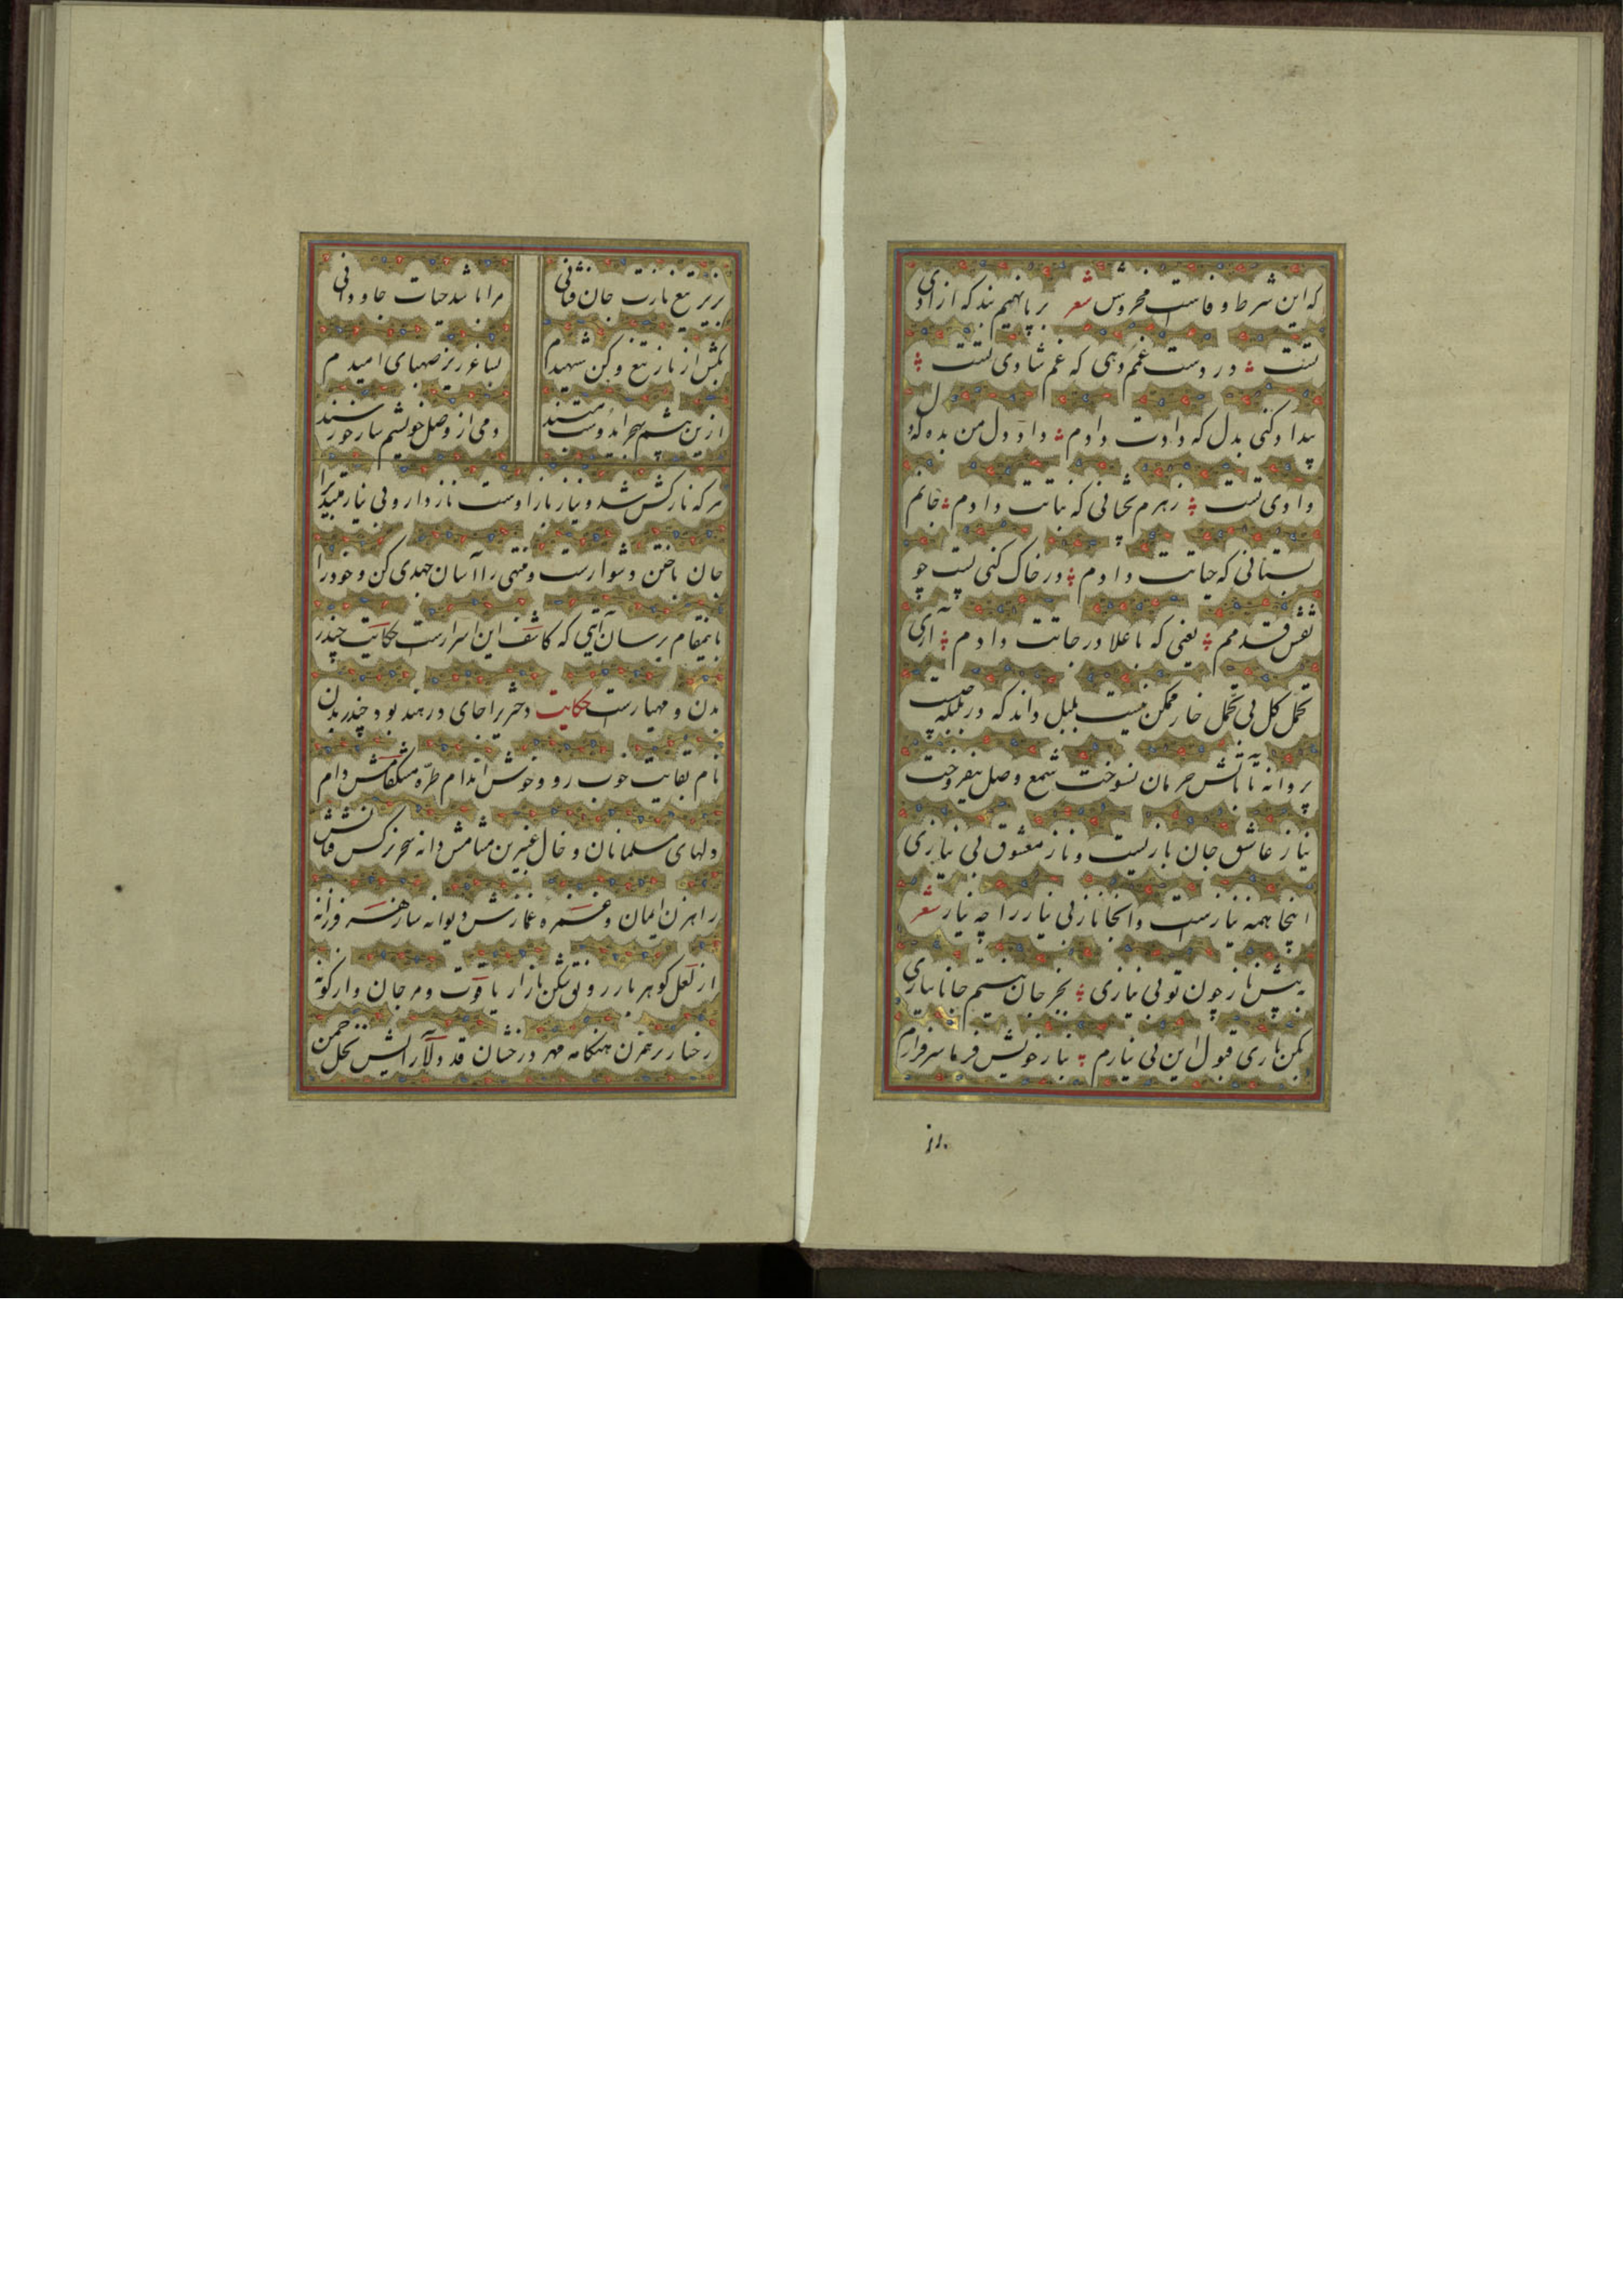 که این شرط وفاست مخروش شعر برپا نهیم بند که ازادی
تست در دست غم دهی که غم شادی تست
بیداد کنی بدل که دادت دادم داد دل من بده که دل
دادی تست زهرم بچشانی که نباتت دادم جانم
بستانی که حیاتت دادم در خاک کنی پست چو
نقش قدمم یعنی که باعلا درجاتت دادم اری
تحمل کل بی تحمل خار ممکن نیست بلبل داند که در بلبله چیست
پروانه تا بآتش حرمان نسوخت شمع وصل نیفروخت
نیاز عاشق جان بازیست و ناز معشوق بی نیازی
اینجا همه نیازست وانجا ناز بی نیاز را چه نیاز شعر
به پیش ناز چون تو بی نیازی بجز جان نیستم جانا نیازی
بکن باری قبول این بی نیازم بناز خویش فرما سرفرازم
بزیر
بزیر تیغ نازت جان فشانی مرا باشد حیات جاودانی
بکش از ناز تیغ و کن شهیدم بساغر ریز صهبای امیدم
ازین بیشم بهجر ایدوست مپسند دمی از وصل خویشم ساز خورسند
هرکه نازکش شد و نیاز باز اوست ناز دار و بی نیاز مبتدیرا
جان باختن دشوارست ومنتهی را آسان جهدی کن و خود را
باینمقام برسان آیی که کاشف این اسرارست حکایت چندر
بدن و مهیارست حکایت دختریرا جای در هند بود چندربدن
نام بغایت خوب رو و خوش اندام طره مشکفامش دام
دلهای مسلمانان و خال عنبرین مشامش دانه سحر نرکس فتانش
راهزن ایمان و غمزه غمازش دیوانه ساز هر فرزانه
از لعل کوهربار رونق شکن بازار یاقوت و مرجان واز کونه
رخسار برهمزن هنکامه مهر درخشان قد دلآرایش نخل چمن